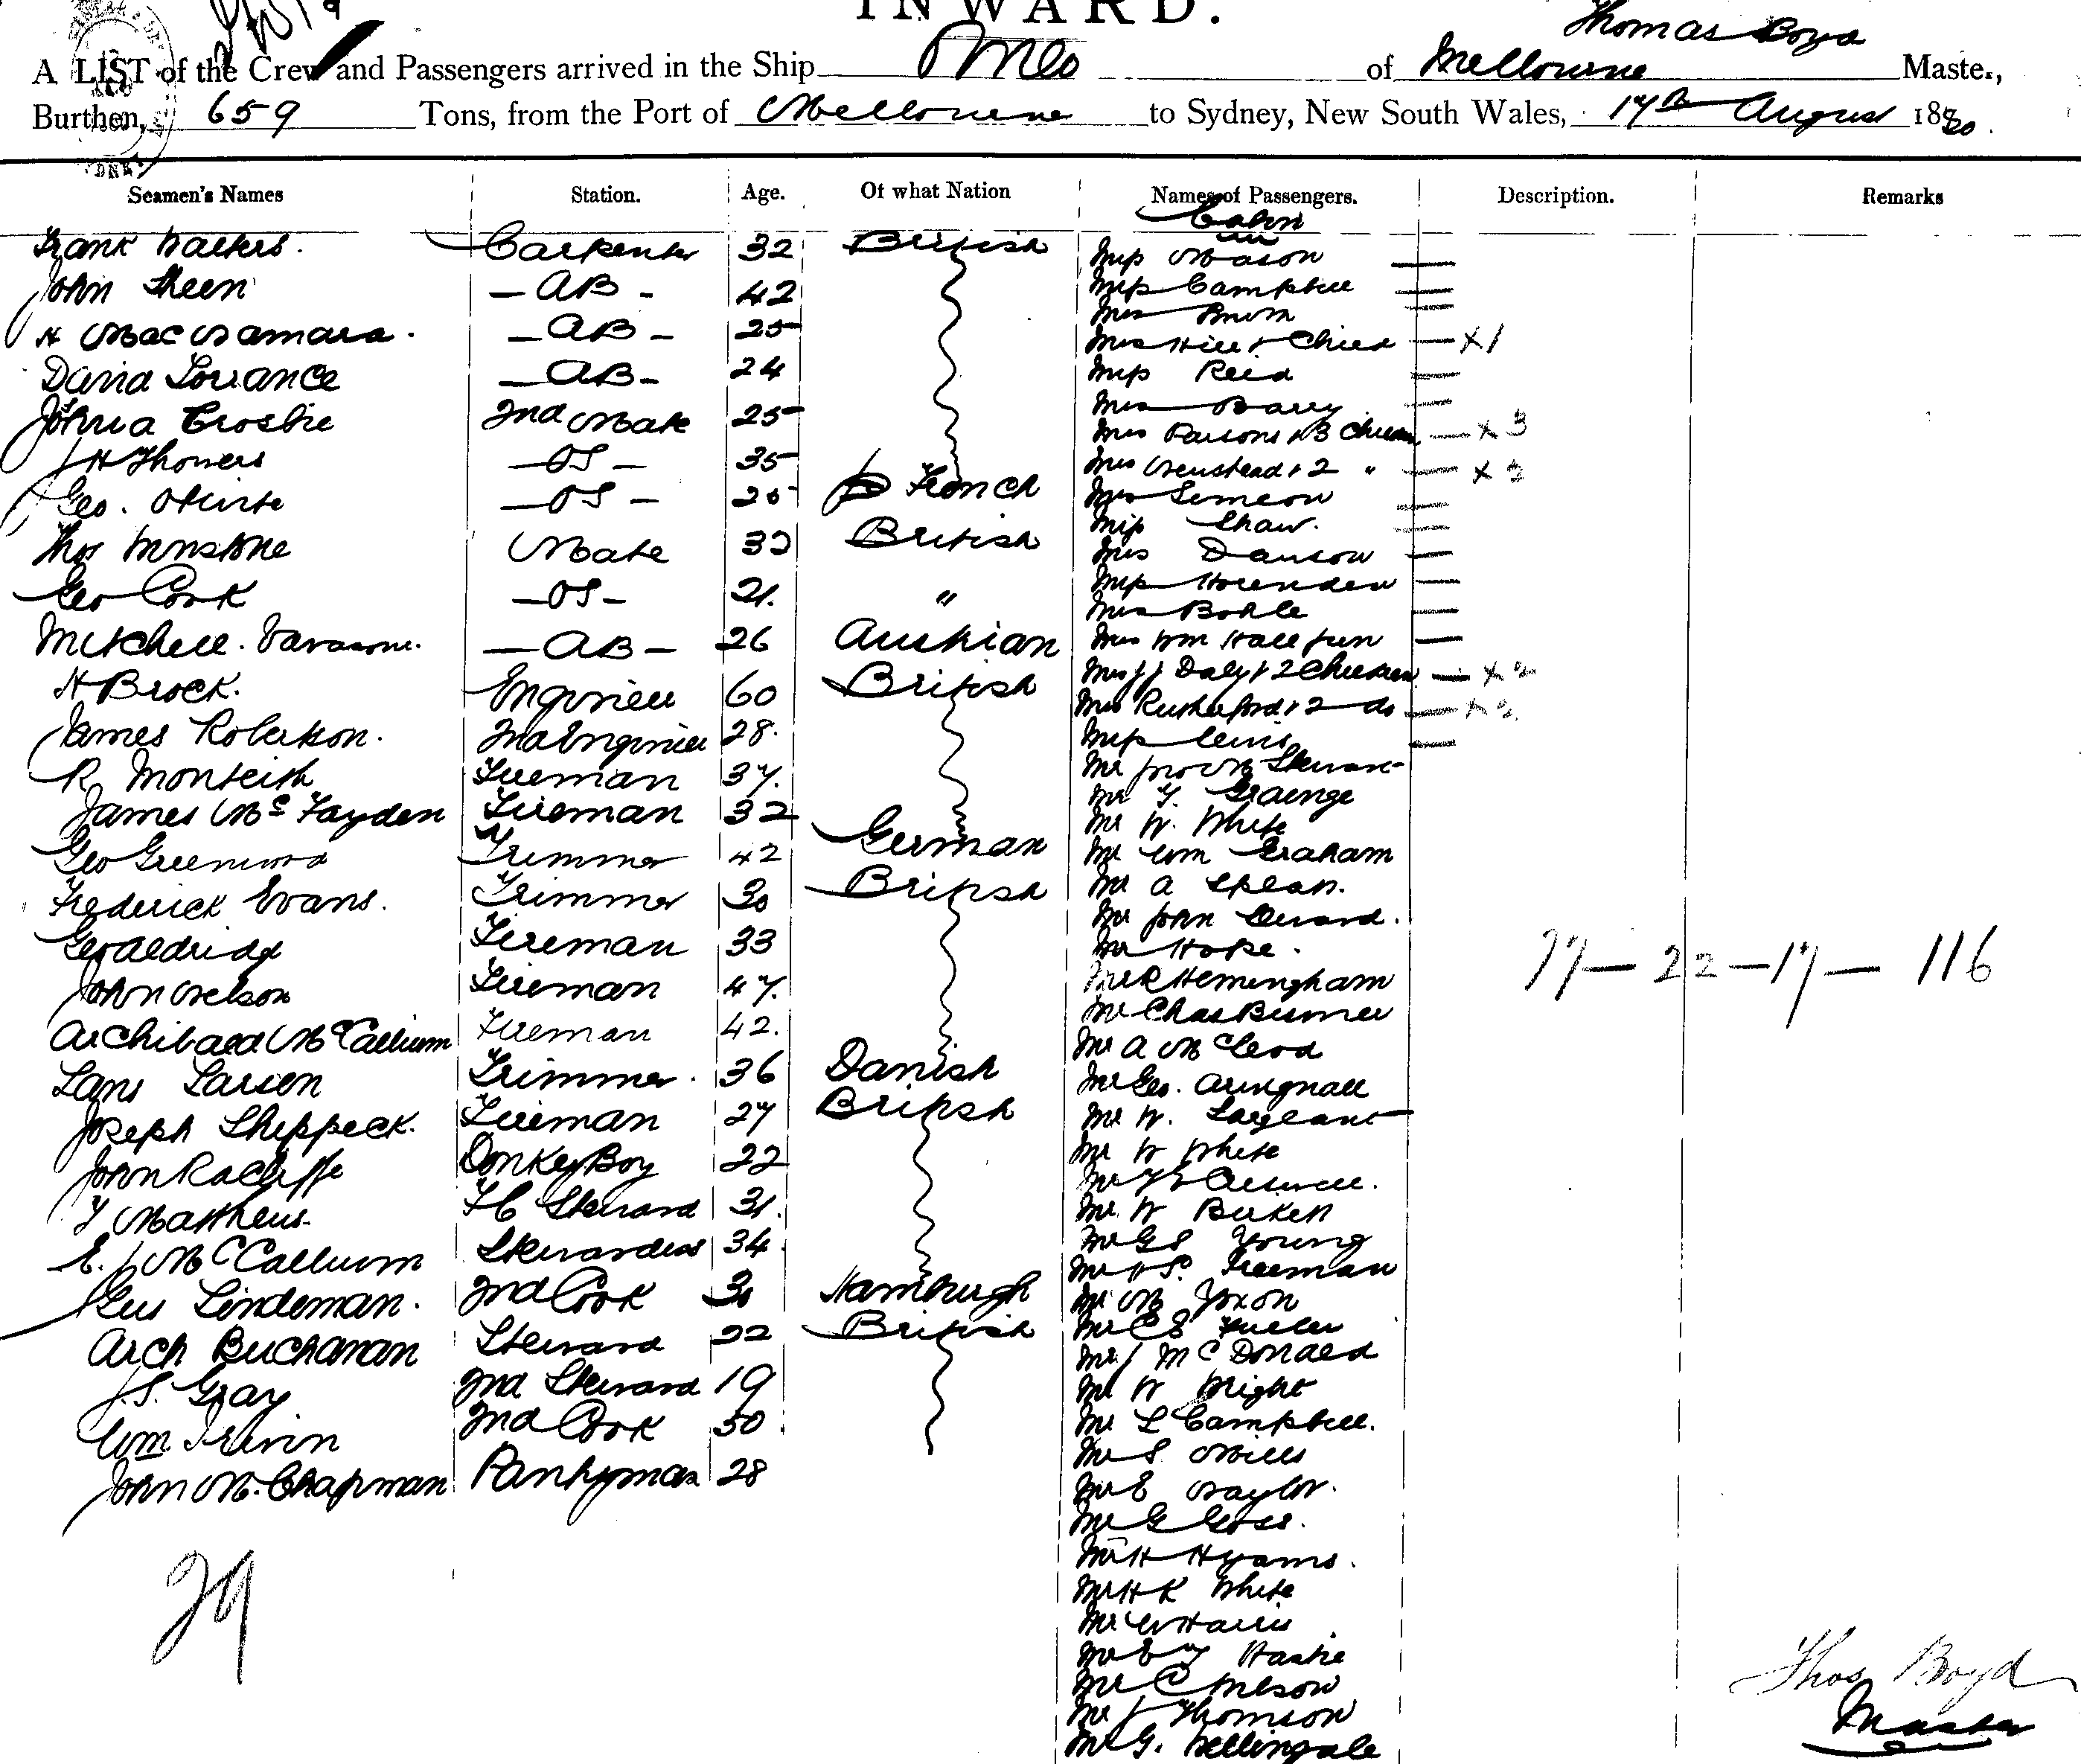 INWARD.
Thomas Boyd
A LIST of the Crew and Passengers arrived in the Ship of Melbourne Master,
Burthen, 659 Tons, from the Port of Melbourne to Sydney, New South Wales, 17th August 1880.
Seamen's Names Station. Age. Of what Nation Names of Passengers. Description. Remarks
Cabin
Frank Walters. Carpenter 32 British Miss Mason
John Skeen AB 42 Miss Campbell
Mrs
H MacNamara. AB 25 Mrs Hill & Child X1
David Lorrance AB 24 Miss Reid
Mrs Barry
Joshua Crosbie 2nd Mate 25 Mrs Parsons & 3 Children X3
J H Thomers OS 35 Mrs Greenstead & 2 " X2
Geo. OS 20 French Mrs Simeon
Miss Shaw.
Thos Winstone Mate 32 British Mrs Dawson
Miss
Geo Cook OS 21. " Mrs Bohle
Mitchell AB 26 Austrian Mrs Wm Hall Jun
Mrs J J Daly & 2 Children X2
H Brock. Engineer 60 British Mrs Rutherford & 2 do X2
James Robertson. 2nd Engineer 28. Miss Lewis
R Monteith Fireman 37. Mr Stewart
Mr Y. Grainge
James McFayden Fireman 32 Mr W. White
Geo Greenwood Trimmer 42 German Mr Wm Graham
Frederick Evans. Trimmer 30 British Mr A
Mr John
Geo Aldridge Fireman 33 Mr Hope.
John Nelson Fireman 47. Mr R Hemingham
77 — 22 — 17 — 116
Mr Chas
Archibald McCallium Fireman 42. Mr A McLeod
Lans Larsen Trimmer. 36 Danish Mr Geo.
Joseph Sheppeck. Fireman 27 British Mr W. Sargeant
John Racliffe Donkey Boy 22 Mr W White
Mr
Y Mathews Steward 31. Mr W Birkett
E. J McCallium Stewardess 34. Mr G S Young
Mr H S. Freeman
Gus Lindeman. 2nd Cook 30 Hamburgh Mr M Yoxon
Arch Buchanan Steward 22 British Mr C E Fuller
Mr J McDonald
J.S. Gray 2nd Steward 19 Mr W Wright
Wm Irwin 2nd Cook 50. Mr L Campbell.
Mr S Mills
John M. Chapman Pantryman 28 Mr E Naylor.
Mr G Goss.
Mr H Hyams.
29
Mr H K White
Mr W Harris
Mr E Y Hastie
Mr C Nelson
Mr J Thomson
Mr G. Bellingale
Thos Boyd
Master